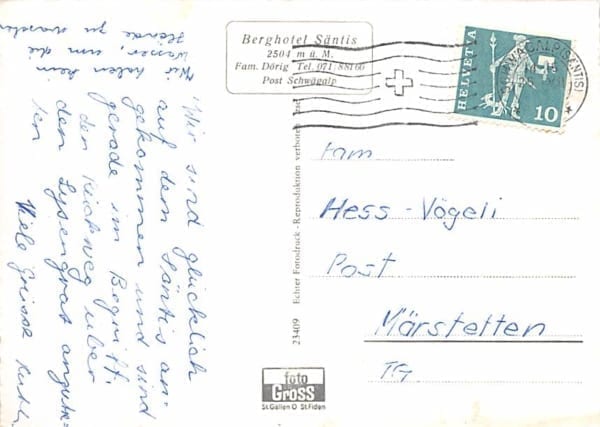 Wir sind glücklich
auf dem Säntis an-
gekommen und sind
gerade im Begriff,
den Rückweg über
den Lysengrat anzutre-
ten
Viele Grüsse Ruth
Wir haben kein
Wasser, um die
Hände zu waschen
Berghotel Säntis
2504 m ü. M.
Fam. Dörig Tel. 071 88160
Post Schwägalp
HELVETIA
10
SCHWÄGALP (SÄNTIS)
Fam.
Hess - Vögeli
Post
Märstetten
TG
23409 Echter Fotodruck - Reproduktion verboten
foto
Gross
St. Gallen O St. Fiden